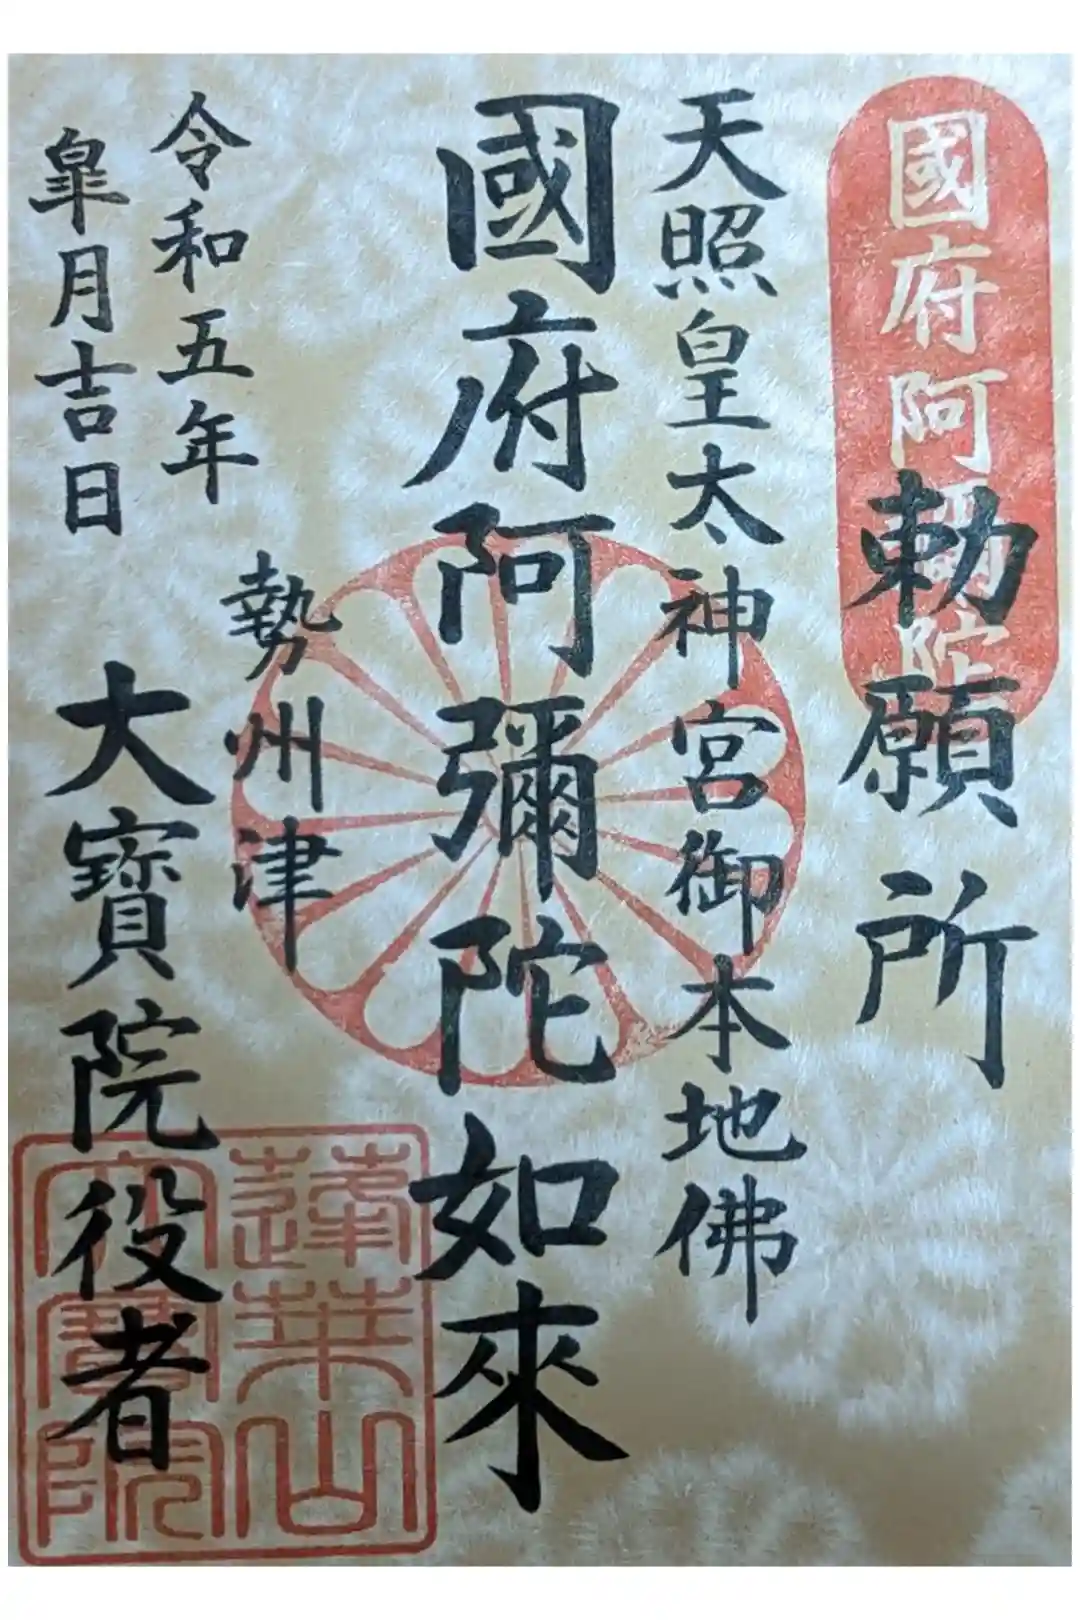 國府阿彌陀
勅願所
天照皇太神宮御本地佛
國府阿彌陀如來
勢州津
令和五年
皐月吉日
大寶院役者
蓮華山
大寶院